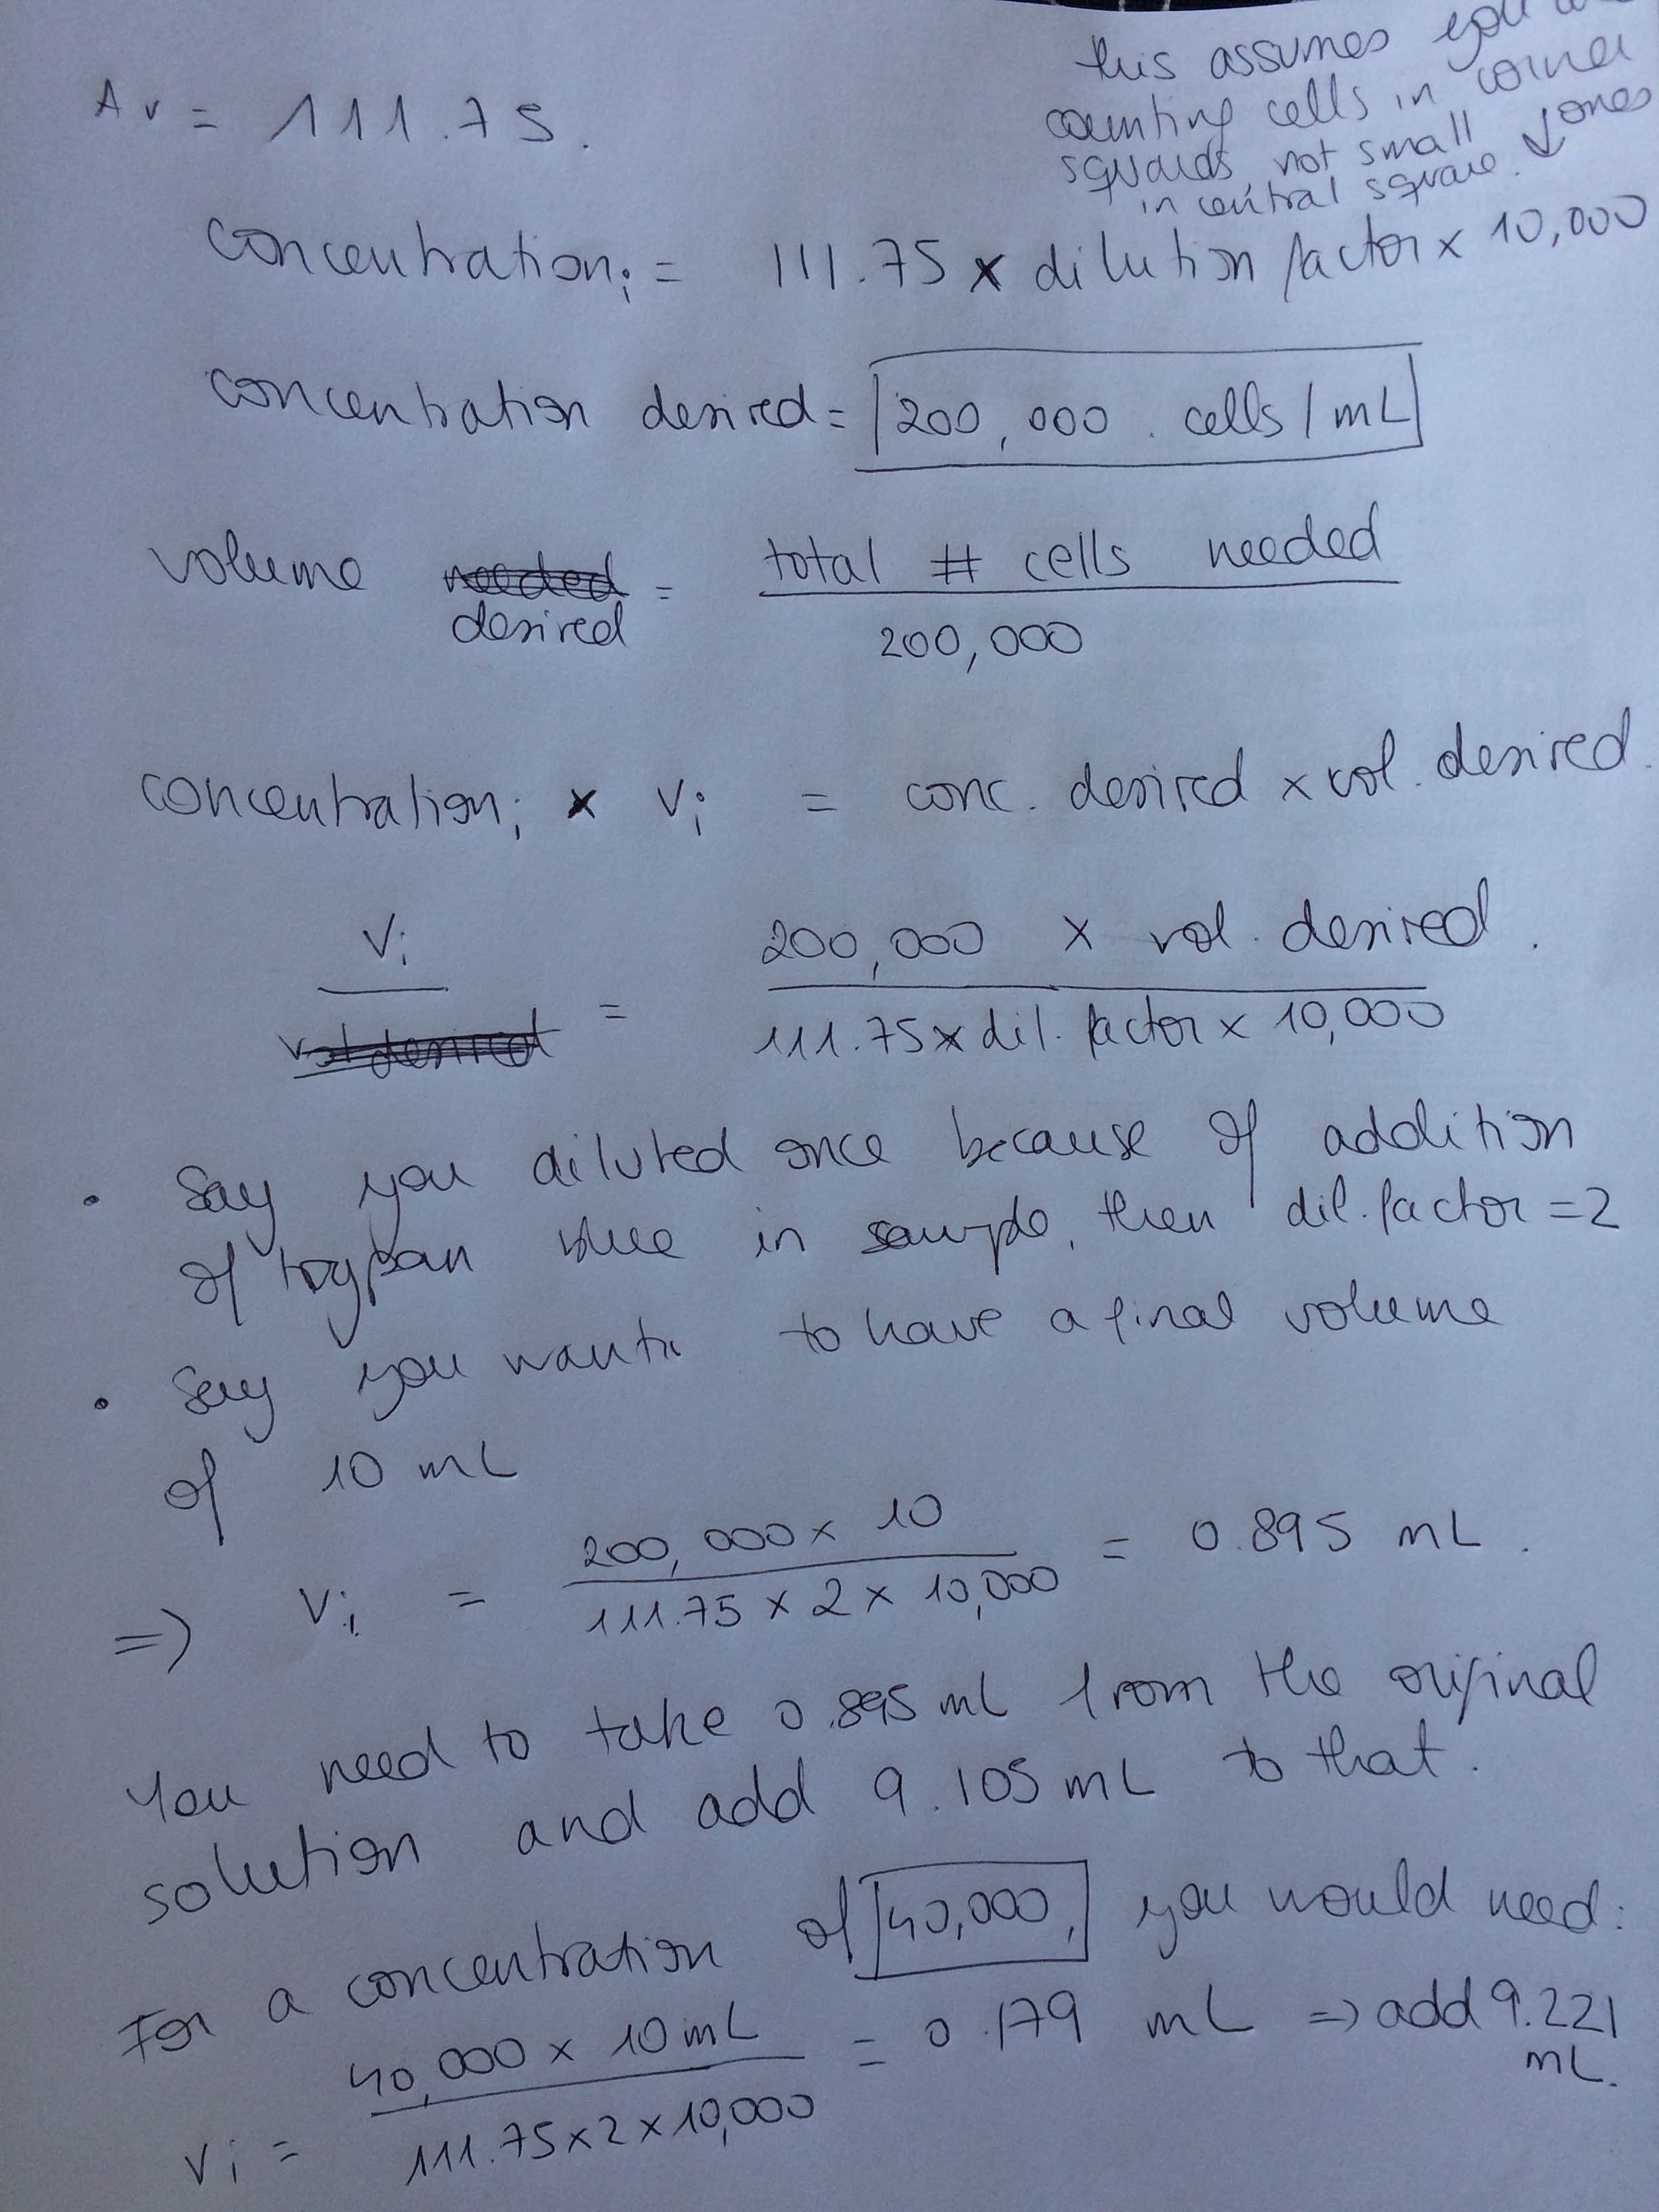 this assumes you
counting cells in corner
squares, not small ones
in central square. ↓
Av = 111.75.
concentration i = 111.75 x dilution factor x 10,000
concentration desired = 200,000. cells/mL
volume needed desired = total # cells needed
200,000
concentration i x Vi = conc. desired x vol. desired.
Vi = 200,000 x vol. desired.
vol desired
111.75 x dil. factor x 10,000
• Say you diluted once because of addition
of trypan blue in sample, then dil. factor = 2
• Say you want to have a final volume
of 10 mL
=> Vi = 200,000 x 10 = 0.895 mL.
111.75 x 2 x 10,000
You need to take 0.895 mL from the original
solution and add 9.105 mL to that.
For a concentration of 40,000, you would need:
Vi = 40,000 x 10 mL = 0.179 mL => add 9.221 mL.
111.75 x 2 x 10,000